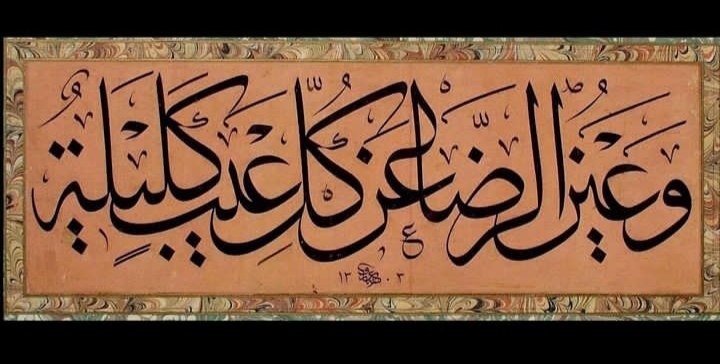 وَعَيْنُ الرِّضَا عَنْ كُلِّ عَيْبٍ كَلِيلَةٌ